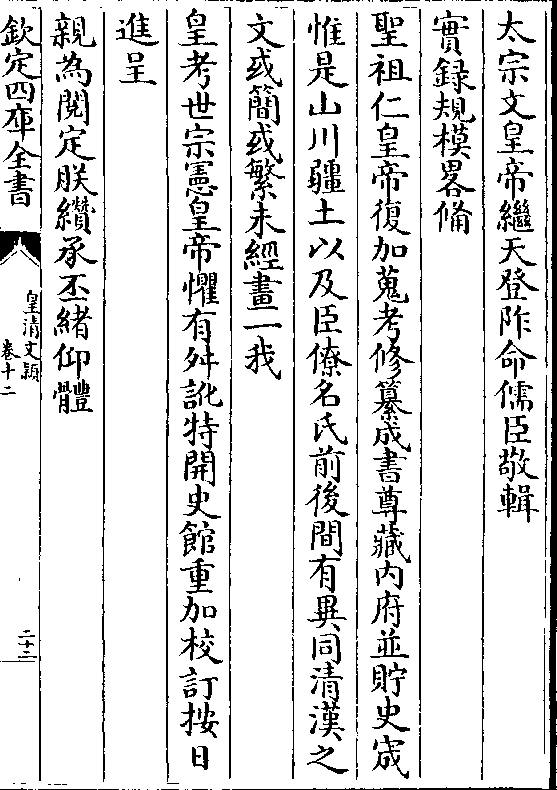 太宗文皇帝繼天登阼命儒臣敬輯
實錄規模畧備
聖祖仁皇帝復加蒐考修纂成書尊藏內府並貯史宬
惟是山川疆土以及臣僚名氏前後間有異同清漢之
文或簡或繁未經畫一我
皇考世宗憲皇帝懼有舛訛特開史館重加校訂按日
進呈
親為閱定朕纘承丕緒仰體
欽定四庫全書
皇清文穎
卷十二
二十二